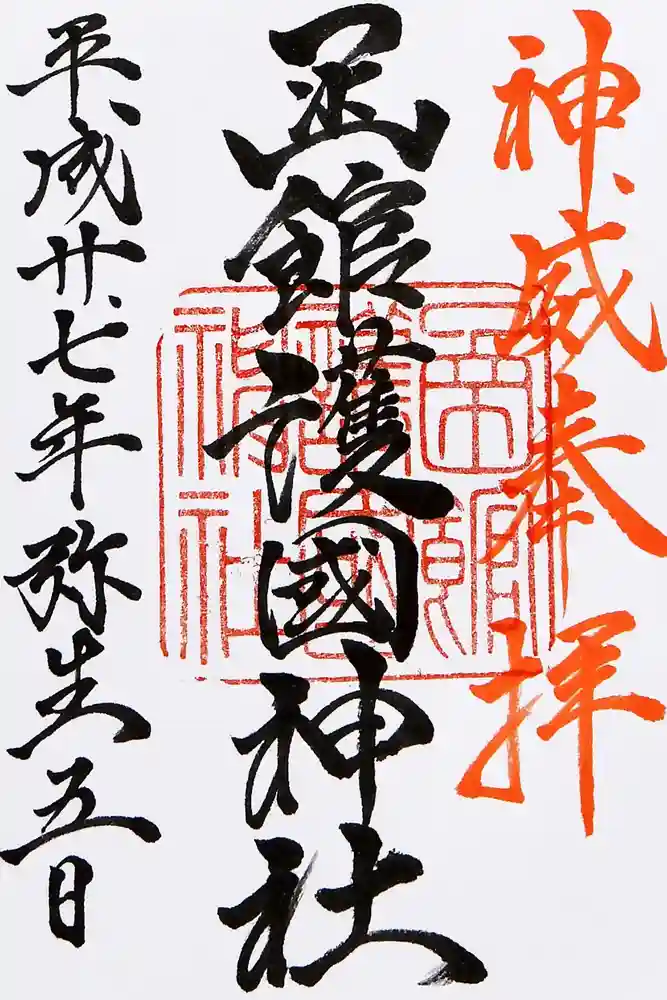 神威奉拝
函館護國神社
函館護國神社
平成廿七年弥生五日